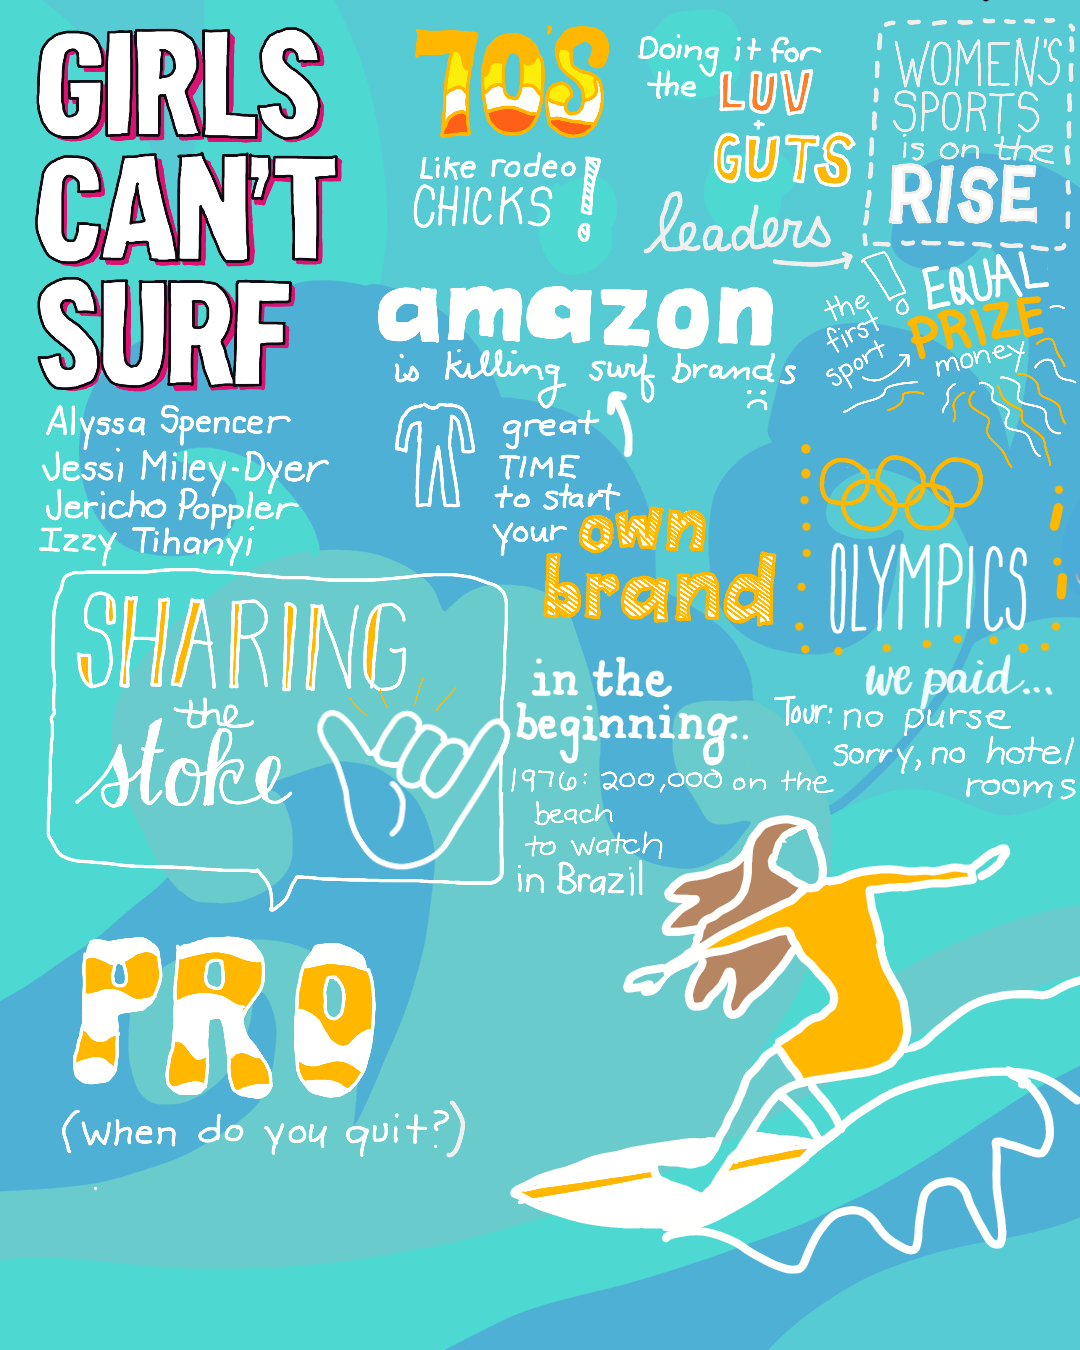 GIRLS
CAN'T
SURF
Alyssa Spencer
Jessi Miley-Dyer
Jericho Poppler
Izzy Tihanyi
70'S
Like rodeo
CHICKS!
Doing it for
the LUV
+
GUTS
leaders
WOMEN'S
SPORTS
is on the
RISE
!
the
first
sport
EQUAL
PRIZE
money
amazon
is killing surf brands
great
TIME
to start
your own
brand
OLYMPICS
SHARING
the
stoke
in the
beginning..
1976: 200,000 on the
beach
to watch
in Brazil
we paid...
Tour: no purse
sorry, no hotel
rooms
PRO
(when do you quit?)